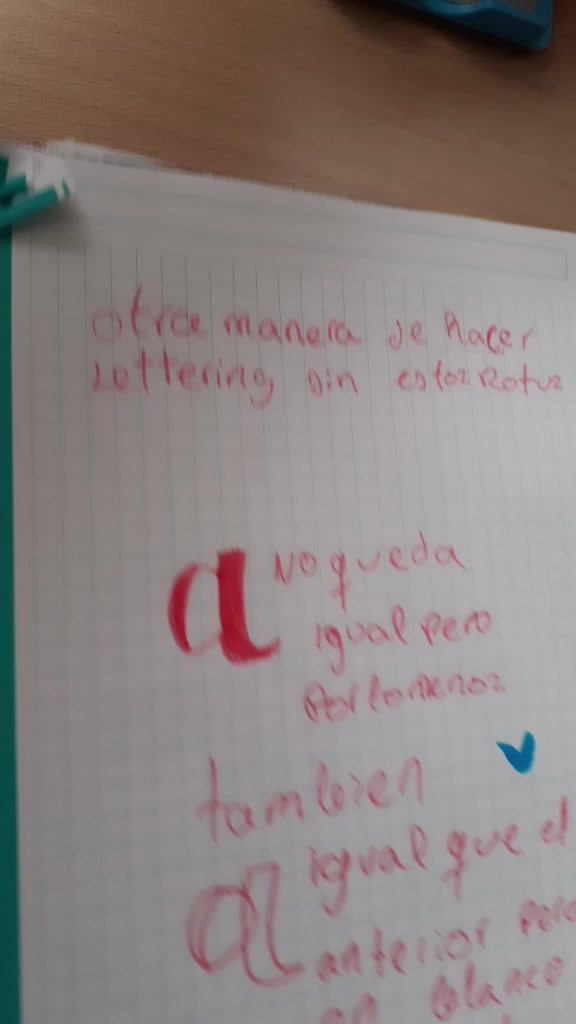 otra manera de hacer
Lettering sin estos Rotus
a No queda
igual pero
Por lo menos
tambien
igual que el
a anterior pero
en blanco